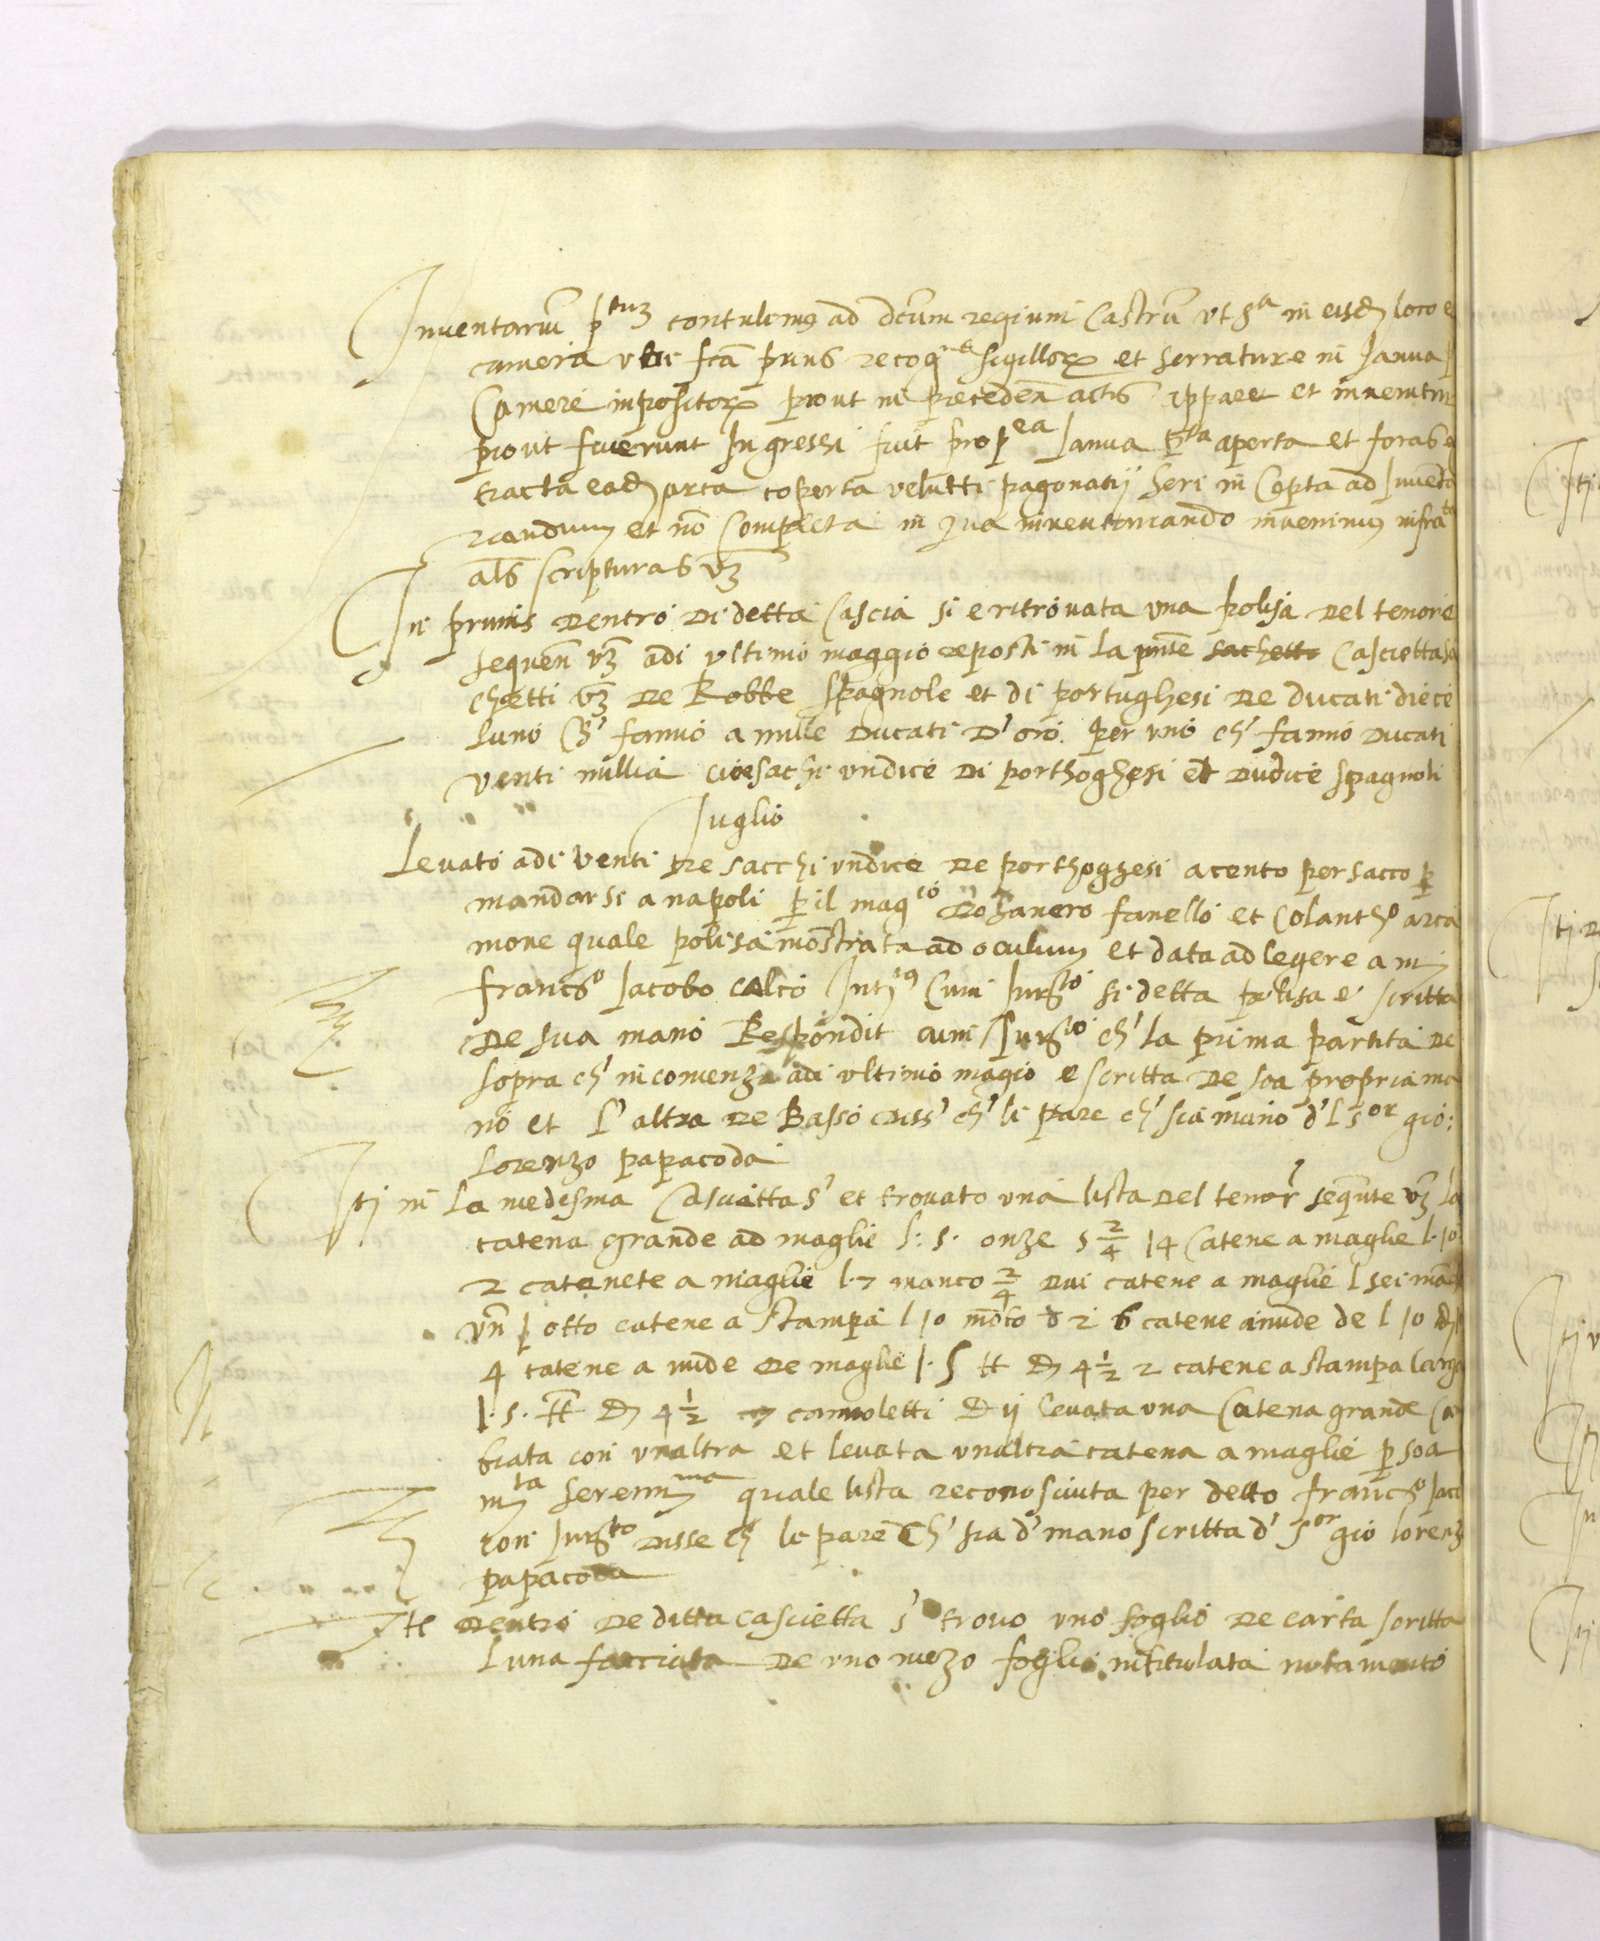 Inventariũ p^tuz contulimus ad dc̃um regium Castrũ ut s^a in eisdẽ loco e
camera ubi fc̃a prius recog^ne sigillorum et serrature in Janua
Camere impositorum prout in precedeñ actis apparet et
prout fuerunt Ingressi fuit prop^ea Janua p^ta aperta et foras e
tracta eadẽ arca coperta velutti pagonatij heri in Cepta ad Inventa
riandum et nõ Completa in qua inventariando invenimus infra^tas
als scripturas vz
In primis dentro di detta Cascia si e ritrovata una polisa del tenore
sequeñ vz adi ultimo maggio reposti in la pñte sachetti Cascietta sa
chetti vz de Robbe spagnole et di portughesi de ducati diece
luno Ch' fanno a mille ducati d'oro per uno ch' fanno ducati
venti millia cioe sachi undice di porthoghesi et dudice spagnoli
Juglio
Levato adi venti de sacchi undice de porthoghesi a cento per sacco p
mandarsi a napoli p il mag^co fanello et Colanth^o arca
mone quale polisa mostrata ad oculum et data ad legere a m
franc^o Jacobo calco Int^us Cum Jur^to si detta polisa e' scritta
de sua mano Respondit cum Jur^to ch' la prima partita de
sopra ch' incomenza adi ultimo magio e scritta de soa propria ma
no et l'altra de Basso diss' ch' li pare ch' sia mano d'l s^or gio:
Lorenzo papacoda
Itẽ in La medesma Cascietta s' et trovato una lista del tenor' seq̃nte vz la
catena grande ad maglie l: 5. onze 5 2/4 14 Catene a maglie l. 10
2 catenete a maglie l. 7 manco 2/4 dui catene a maglie l sei mãco
uñ otto catene a stampa l 10 mãco 6 catene anude de l 10
4 catene a nude de maglie 4 1/2 2 catene a stampa larga
4 1/2 cannoletti levata una Catena grande Ca
biata con unaltra et levata unaltra catena a maglie p soa
m^ta seren^ma quale lista reconosciuta per detto franc^o Jaco
con Jur^to disse ch' le pare Ch' sia d' mano scritta d' s^or gio lorenz
papacoda
Ite dentro de ditta cascietta s' trovo uno foglio de carta scritta
luna facciata de uno mezo foglio intitulata notamento